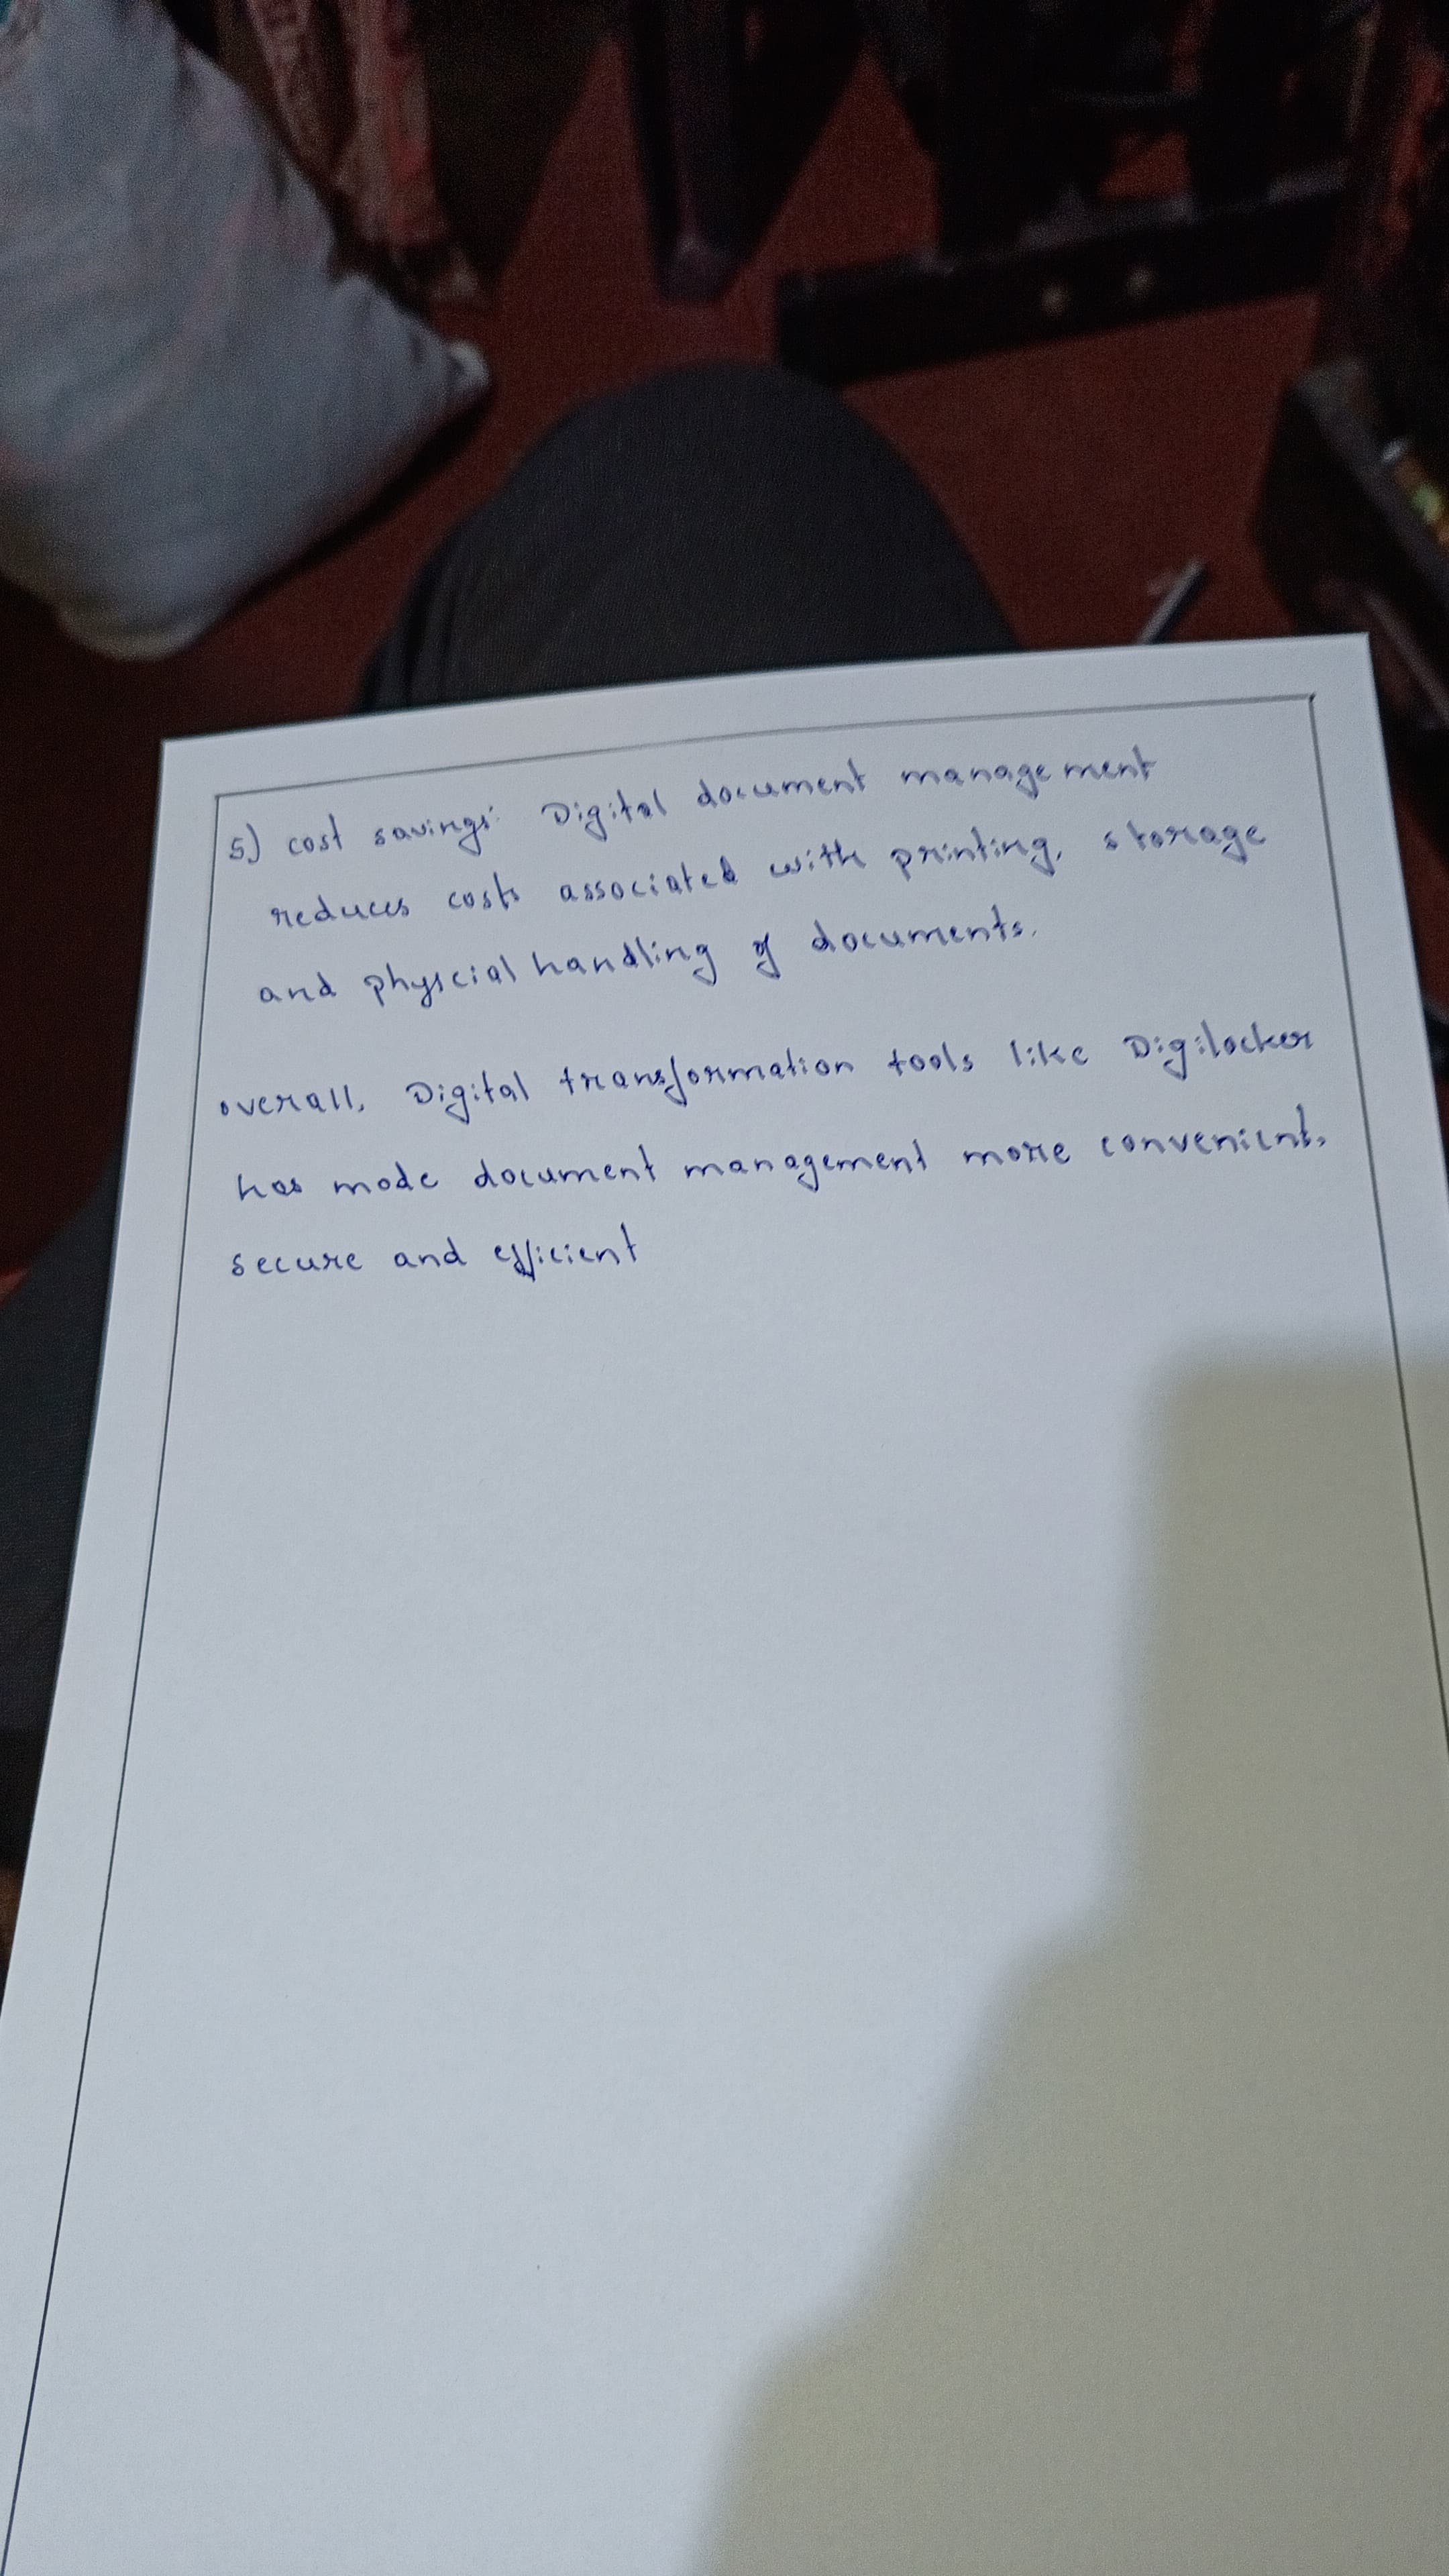 5) cost savings: Digital document management
reduces costs associated with printing, storage
and physcial handling of documents.
overall, Digital transformation tools like Digilocker
has made document management more convenient,
secure and efficient